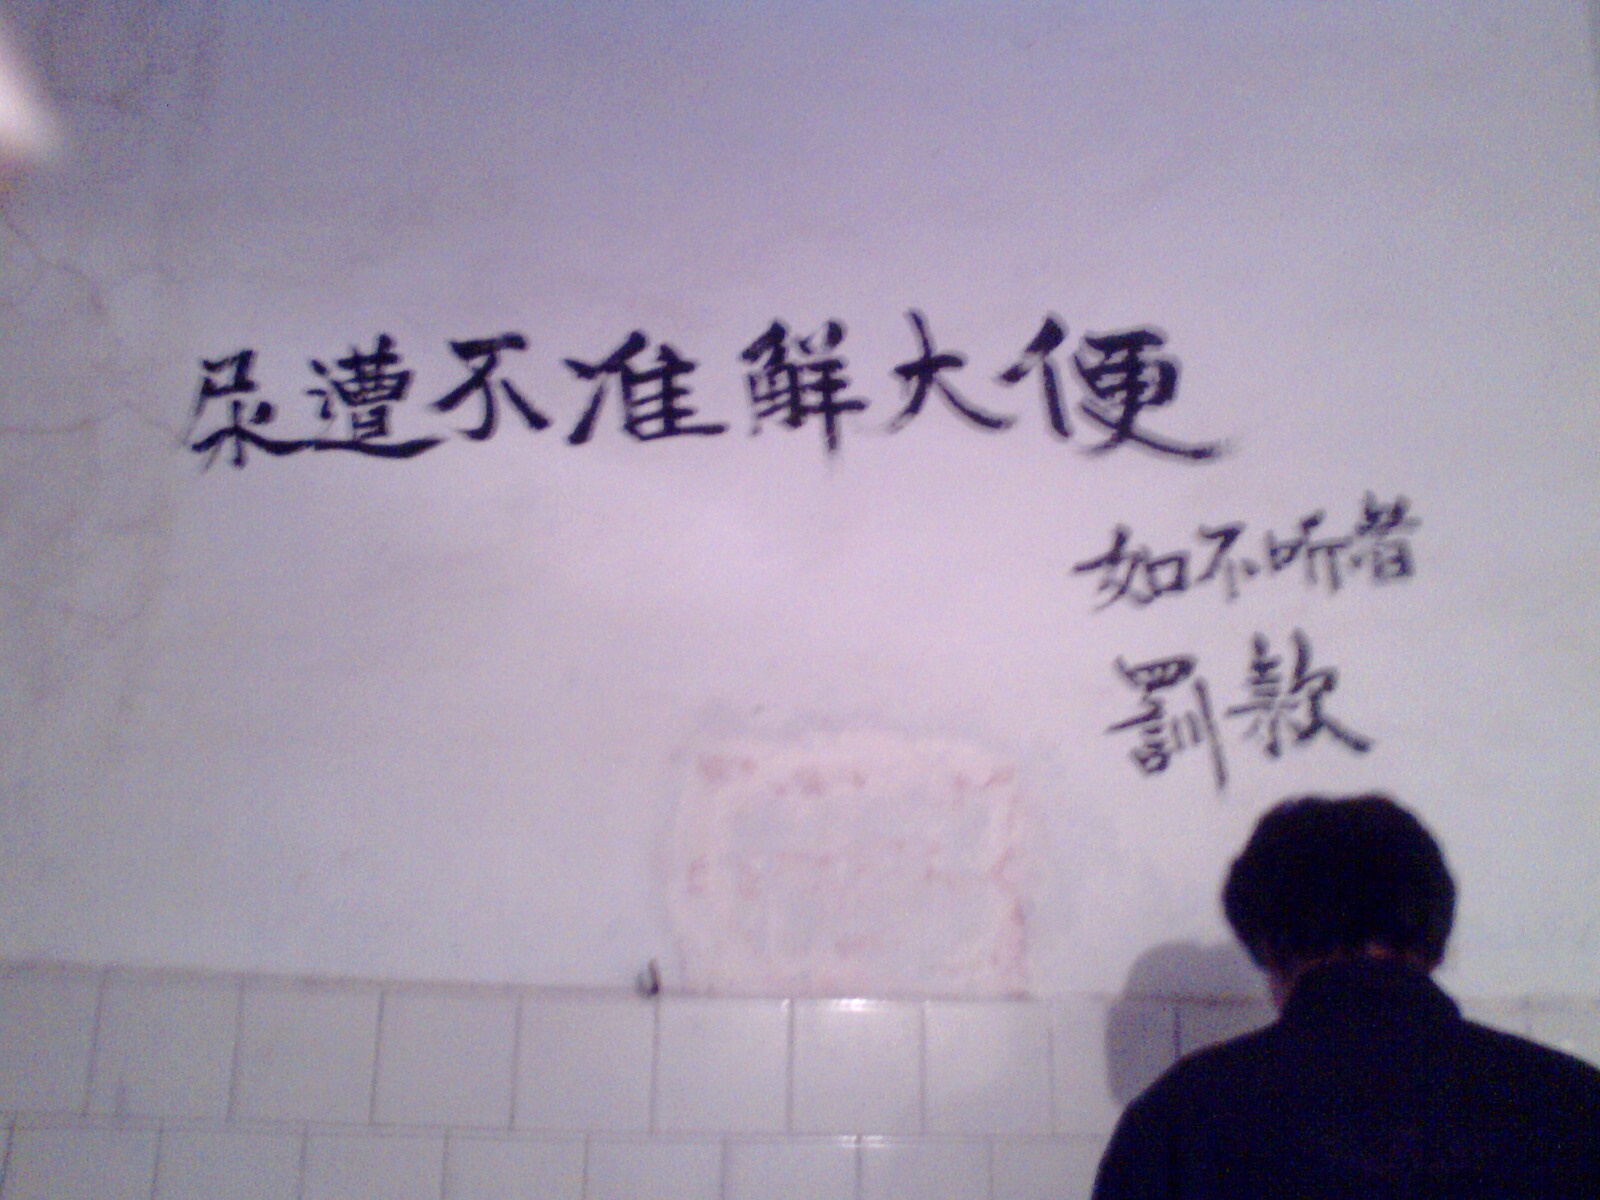 尿遭不准觧大便
如不听者
罚款